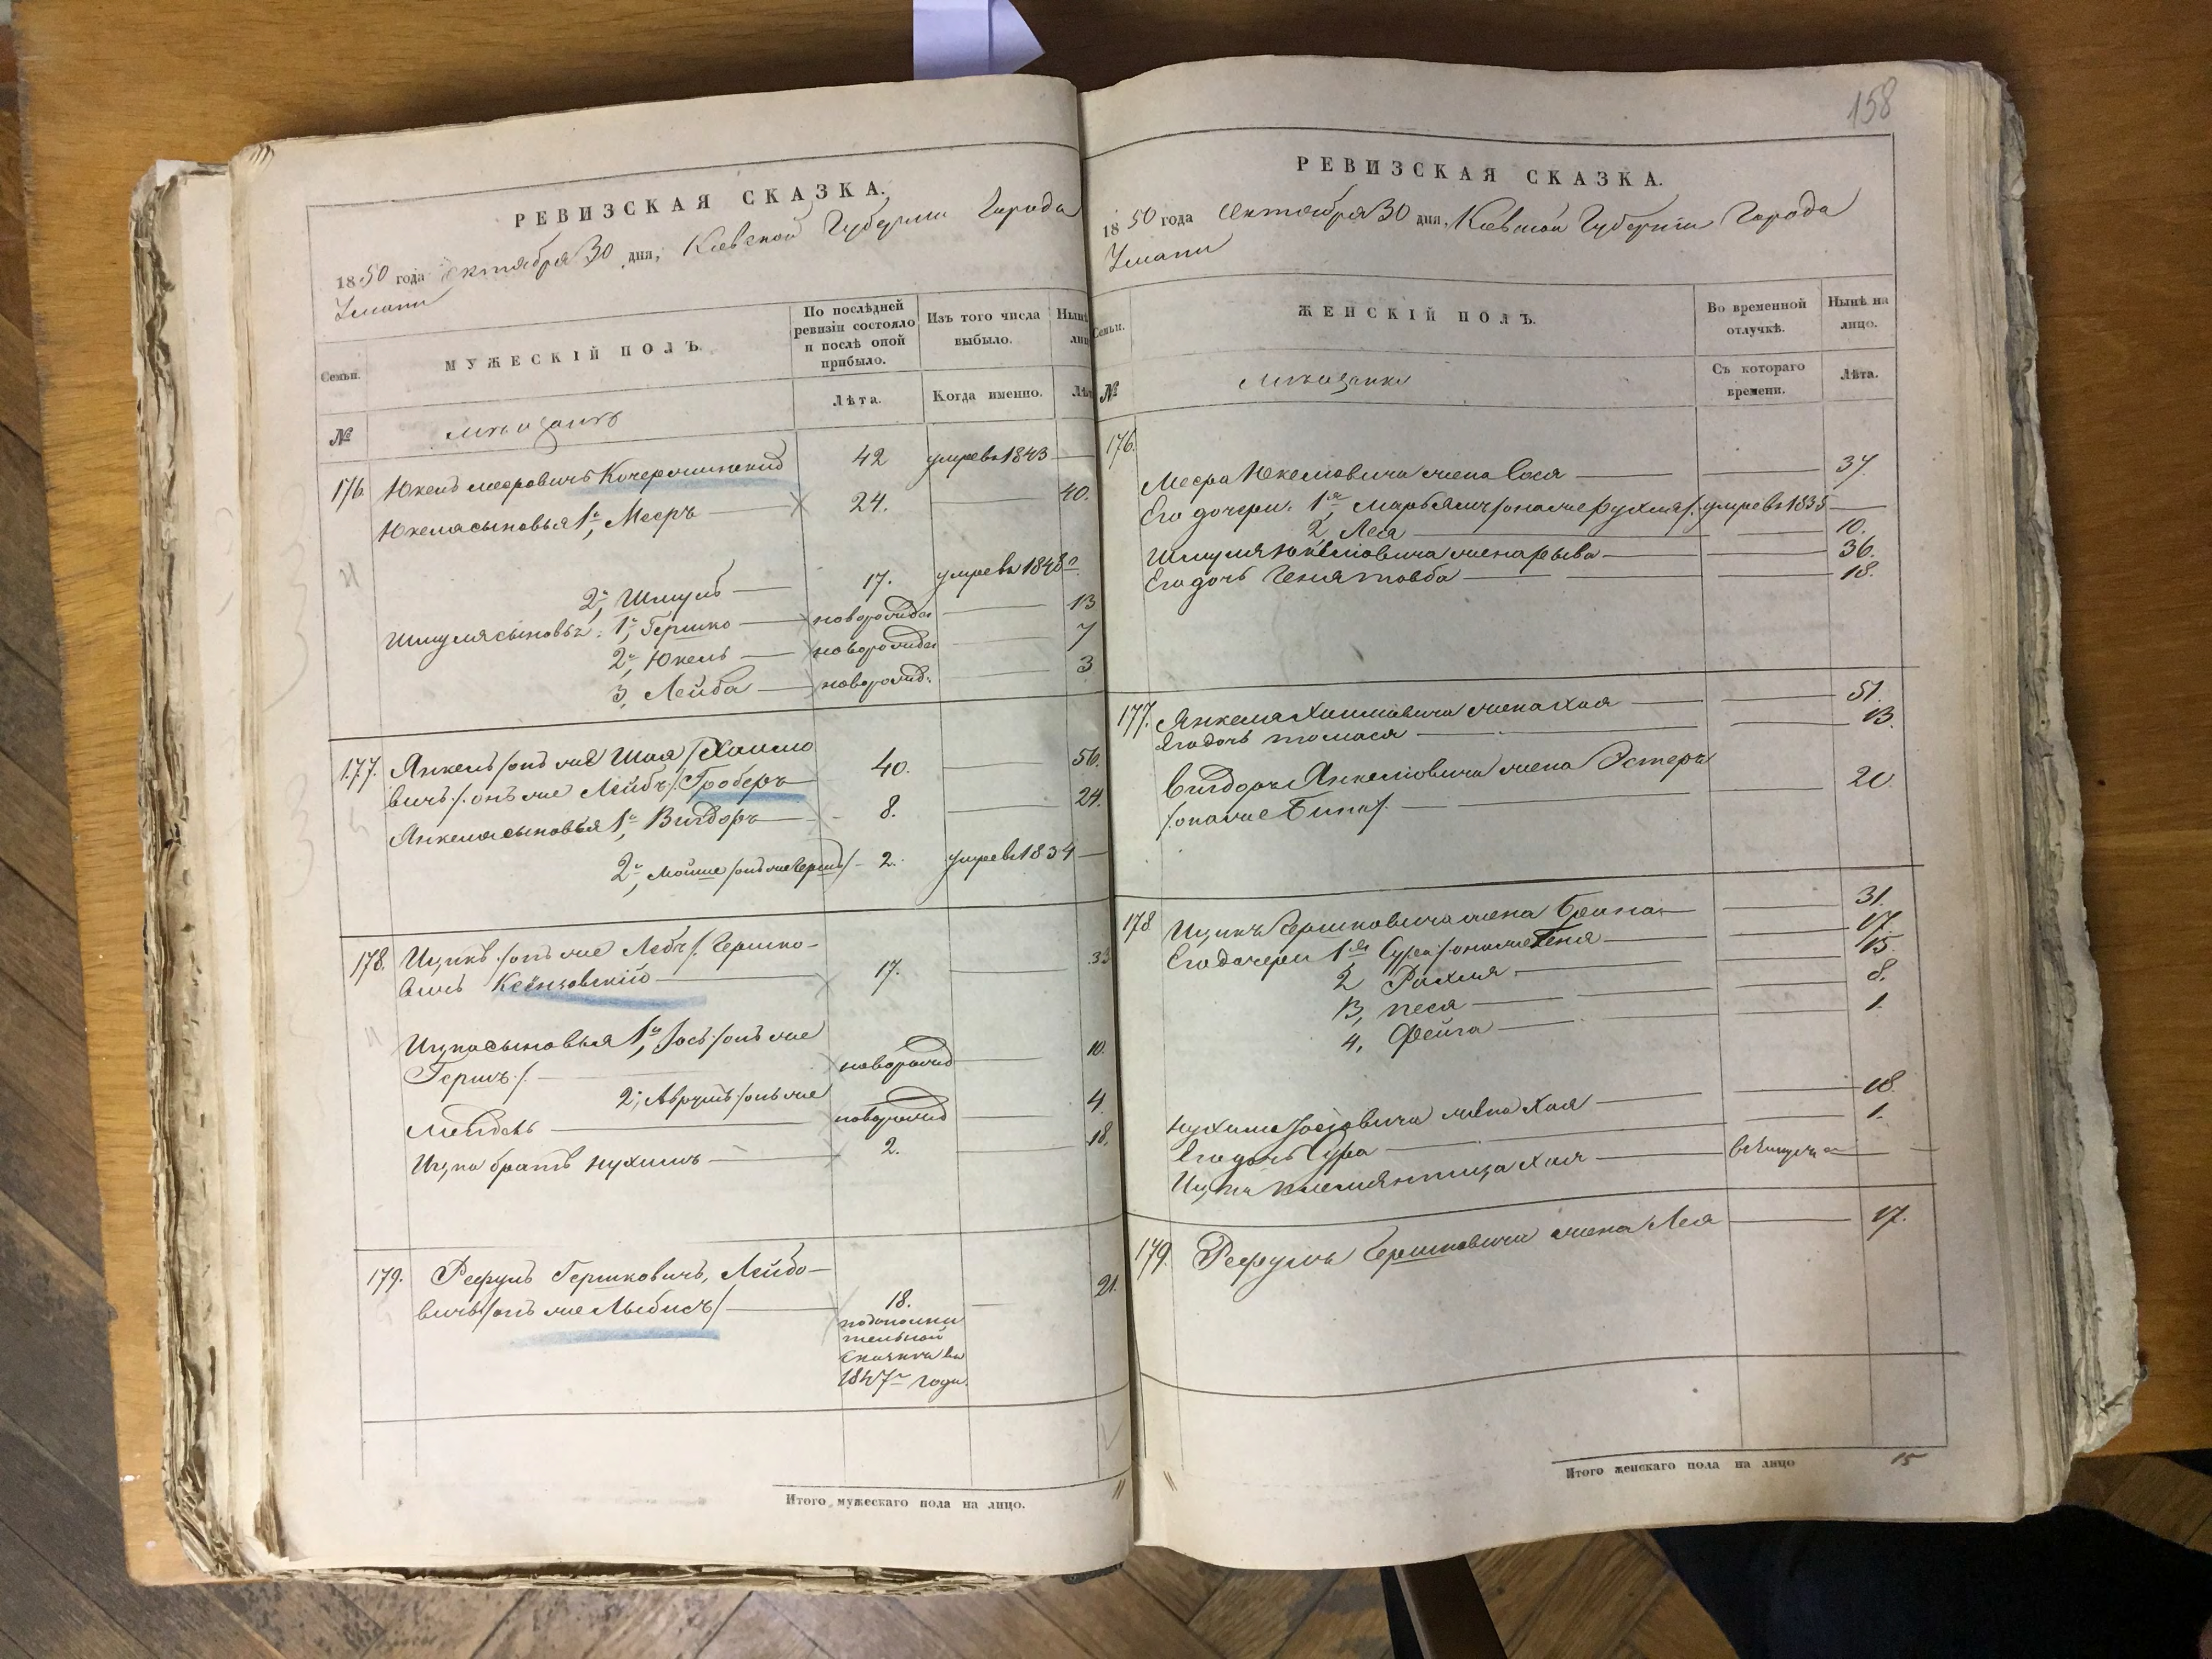 РЕВИЗСКАЯ СКАЗКА.
1850 года Октября 30 дня, Кіевской Губерніи Города
Умани
Семьи.
МУЖЕСКІЙ ПОЛЪ.
По послѣдней
ревизіи состояло
и послѣ оной
прибыло.
Изъ того числа
выбыло.
Нынѣ
лиц
Лѣта.
Когда именно.
Лѣт
№
мѣщанъ
176 Юкель Меровичъ Кочерминскій 42 умре въ 1843
Юкеля сыновья 1й, Мееръ 24. 40.
2й, Шмуль 17. умре въ 1848го
Шмуля сыновья: 1й, Гершко новорожден 13
2й, Юкель новорожден 7
3, Лейба новорожд: 3
177. Янкель /онъ же Шая/ Хаимо
вичъ /: онъ же Лейбъ/: Гроберъ 40. 56.
Янкеля сыновья 1й, Вигдоръ 8. 24.
2й, Мошие /онъ же Гершъ/ 2. умре въ 1834
178. Ицикъ /: онъ же Лебъ/: Гершко-
вичъ 17. 33
Ицка сыновья 1й, Іось /: онъ же
Гершъ/: новорожд 10.
2й, Аврумъ /: онъ же
Мендель новорожд 4.
Ицка братъ Нухимъ 2. 18.
179. Рефулъ Гершковичъ, Лейбо-
вичъ /онъ же Лыбисъ/ 18. 21.
по дополни
тельной
сказки въ
1847м году.
Итого мужескаго пола на лицо.
158
РЕВИЗСКАЯ СКАЗКА.
1850 года Октября 30 дня, Кіевской Губерніи Города
Умани
Семьи.
ЖЕНСКІЙ ПОЛЪ.
Во временной
отлучкѣ.
Нынѣ на
лицо.
№
мѣщанки
Съ котораго
времени.
Лѣта.
176.
Меера Юкелiовича жена Сося 37
Его дочери: 1я Марьямъ /она же Рухля/: умре въ 1835
2, Лея 10.
Шмуля Юкелiовича жена Рыва 36.
Его дочь Геня Товба 18.
177. Янкеля Хаимовича жена Хая 51.
Его дочь 13.
Вигдора Янкелiовича жена Эстеръ
/: она же Бина/: 20
178 Ицика Гершковича жена Брана 31.
Его дочери 1я Сура /: она же Геня 17.
2, Рахля 15.
3, Песя 8.
4, Фейга 1.
Нухима Іосіовича жена Хая 18.
Его дочь Сура 1.
Ицка племянница Хая
179. Рефула Гершковича жена Лея 17.
Итого женскаго пола на лицо 15